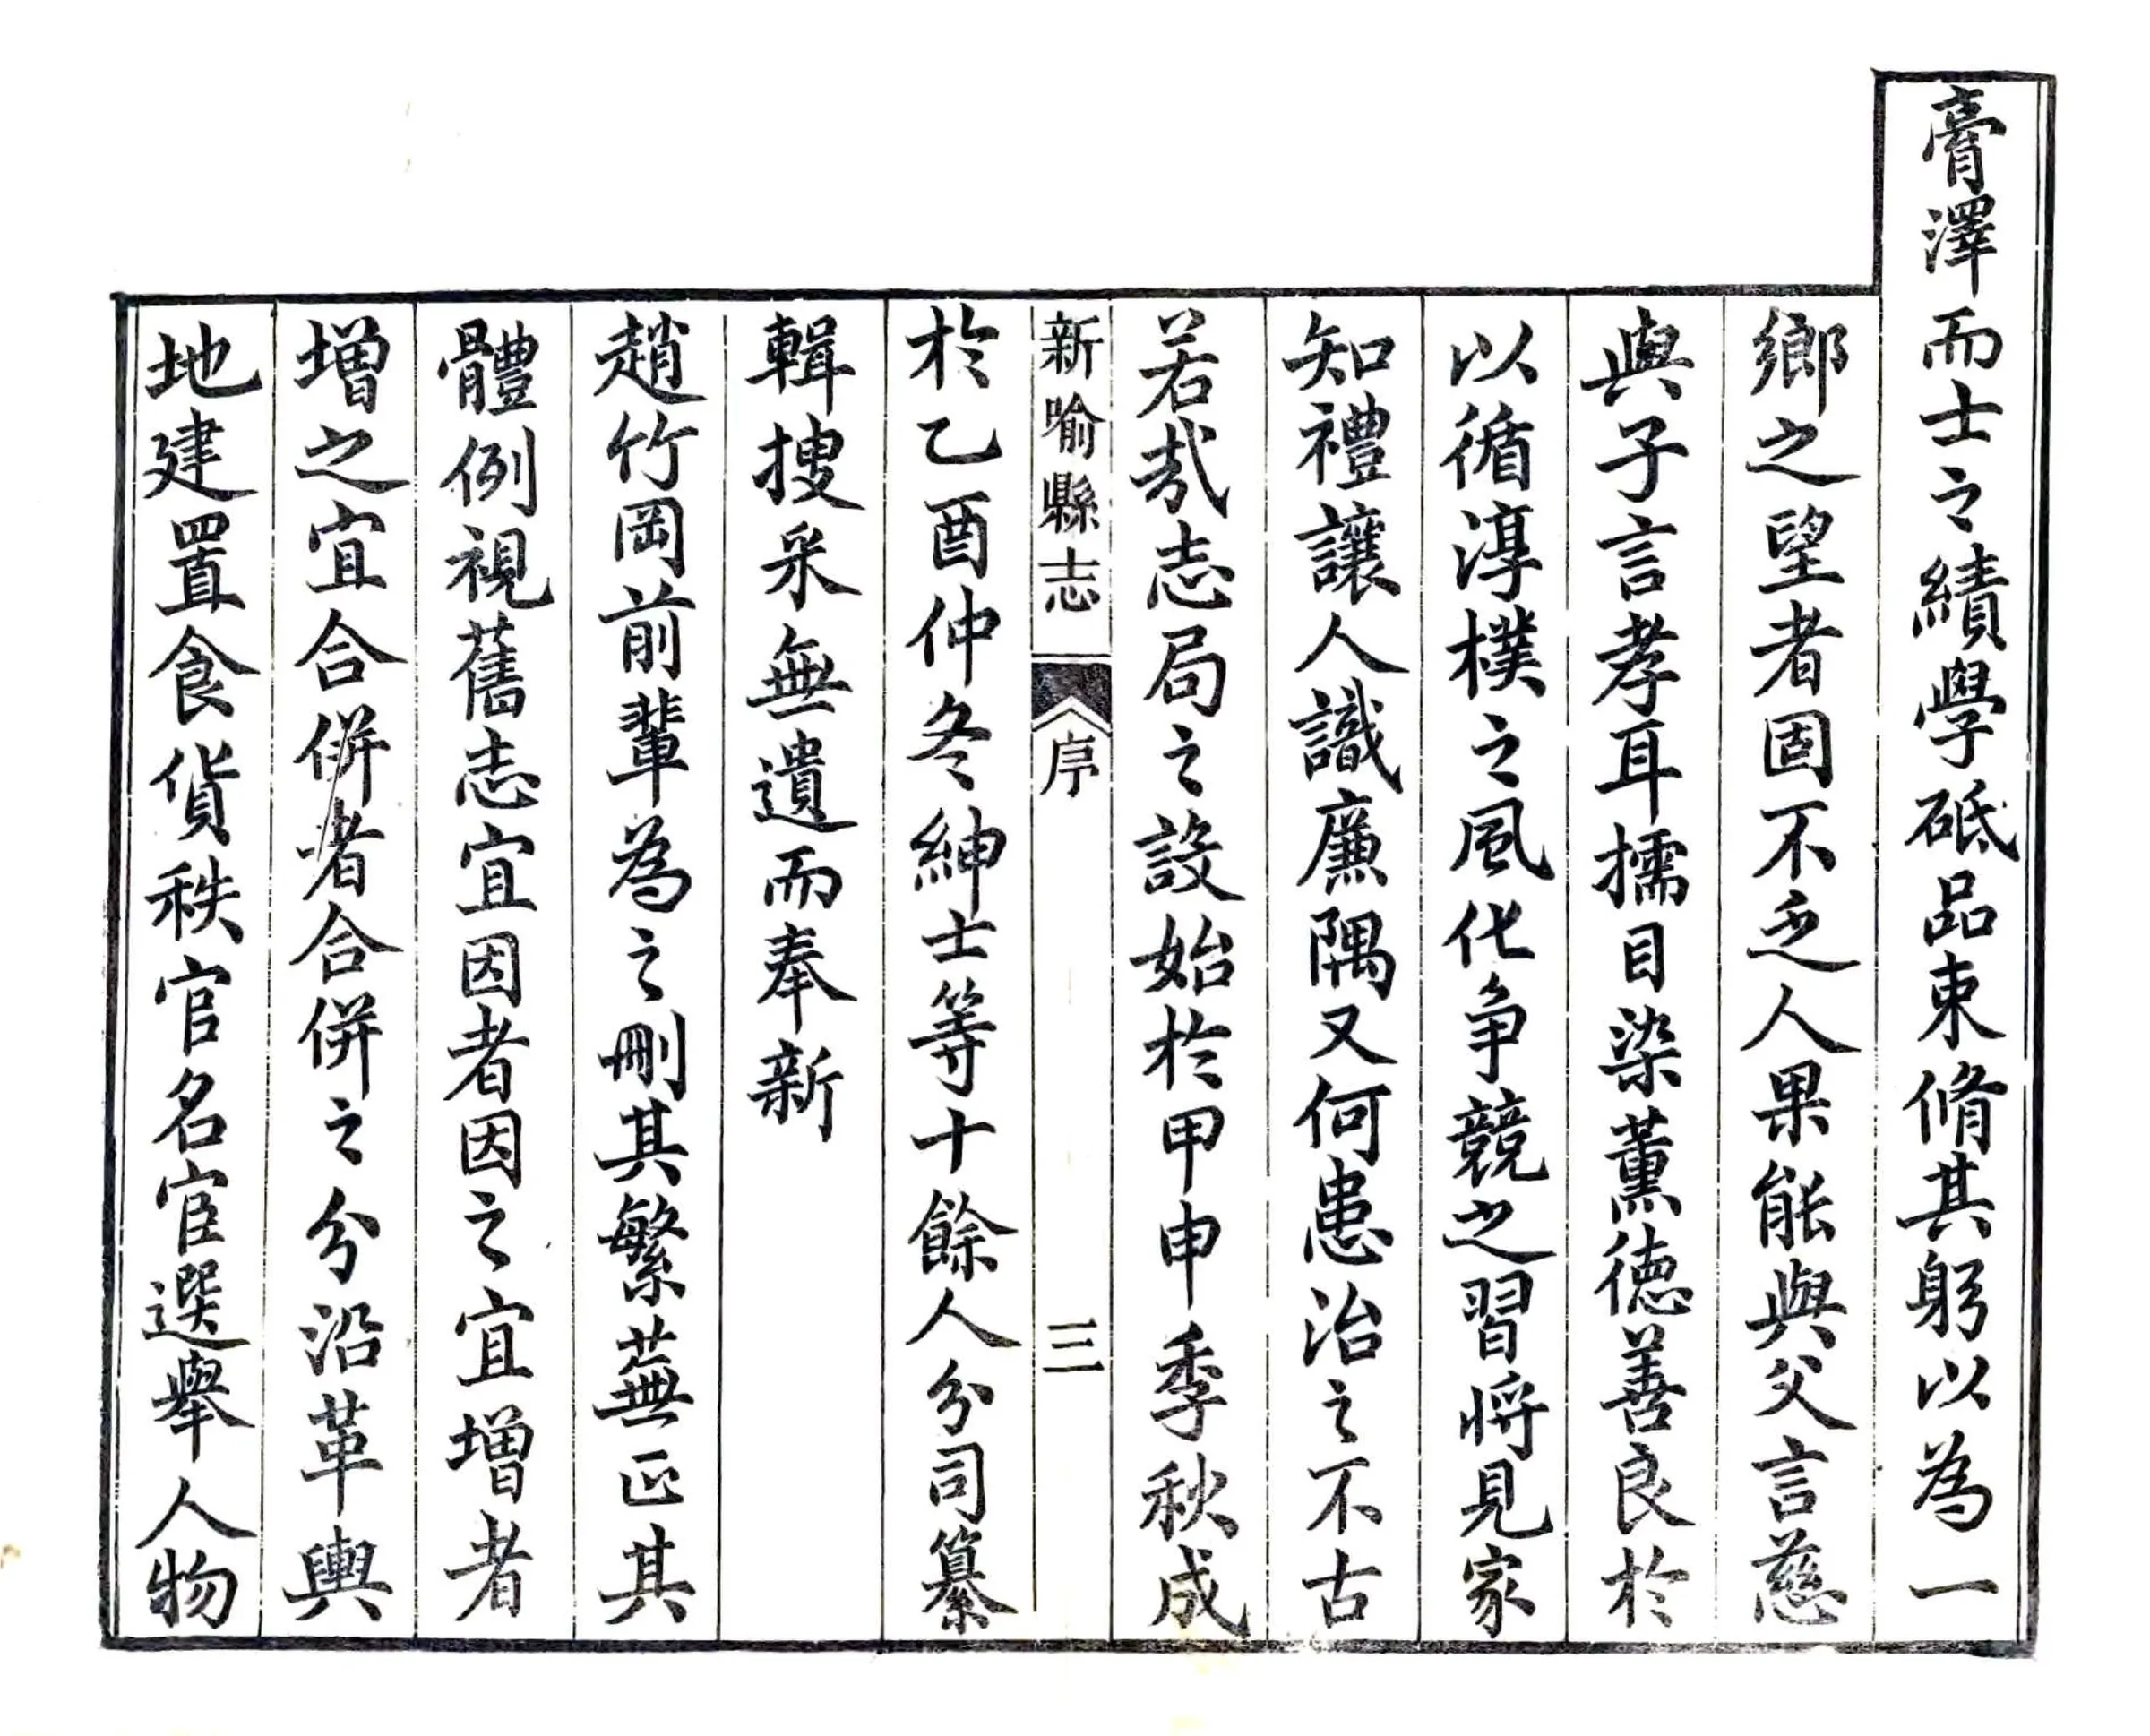 膏澤而士之績學砥品束脩其躬以為一
鄉之望者固不乏人果能與父言慈
與子言孝耳擩目染薰德善良於
以循淳樸之風化争競之習將見家
知禮讓人識廉隅又何患治之不古
若㢤志局之設始於甲申季秋成
新喻縣志 序 三
於乙酉仲冬紳士等十餘人分司纂
輯搜采無遺而奉新
趙竹岡前輩為之刪其繁蕪正其
體例視舊志宜因者因之宜增者
增之宜合併者合併之分沿革輿
地建置食貨秩官名宦選舉人物